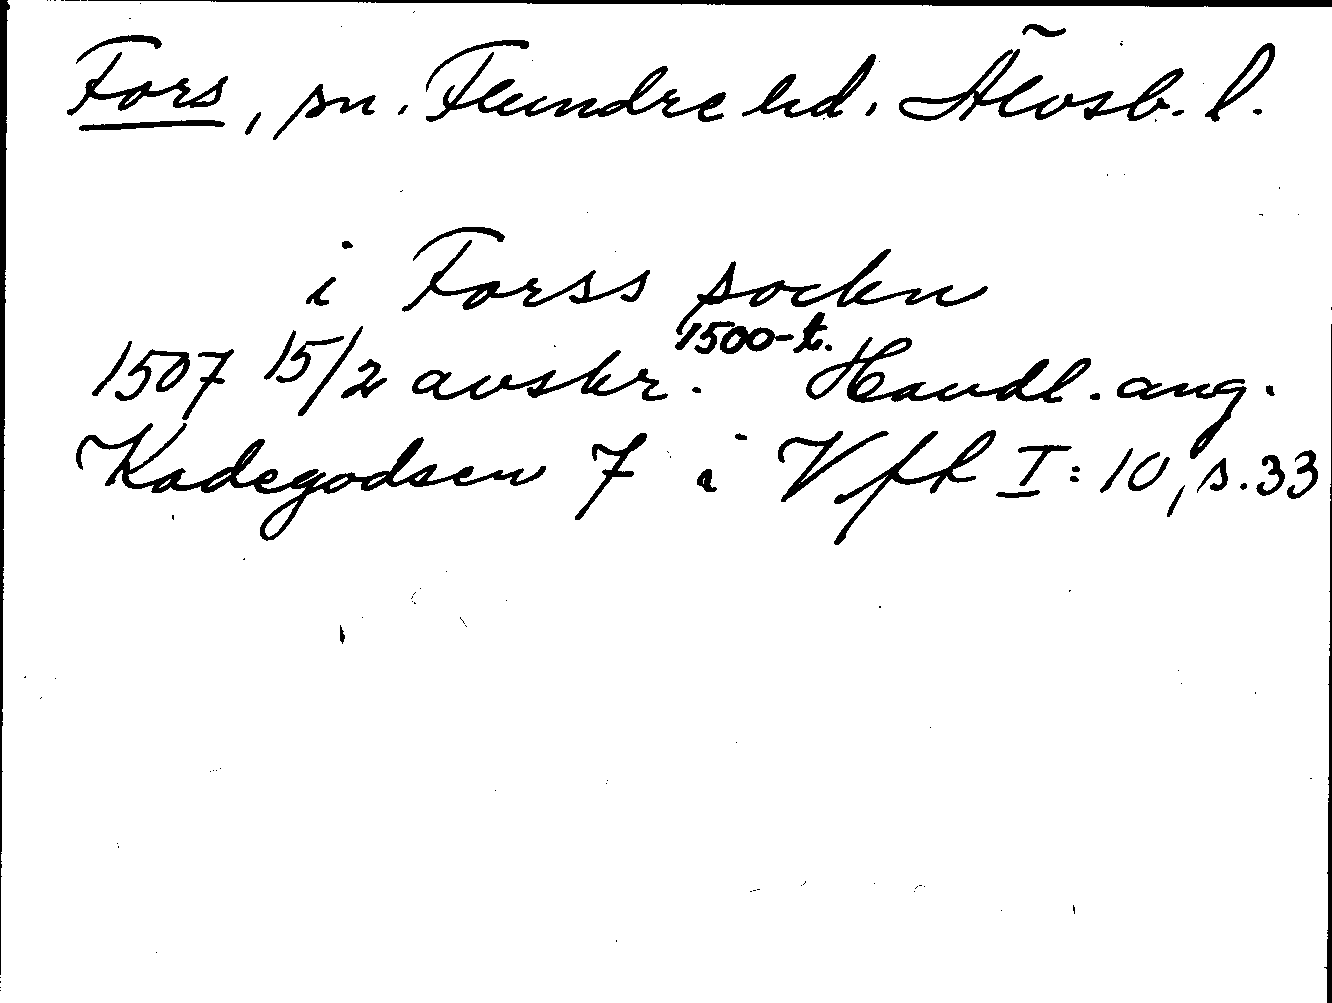 Fors, sn. Flundre hd. Älvsb. l.
i Forss sockn
1507 15/2 avskr. 1500-t. Handl. ang.
Kadegodsen 7 i Vfft I:10, s.33